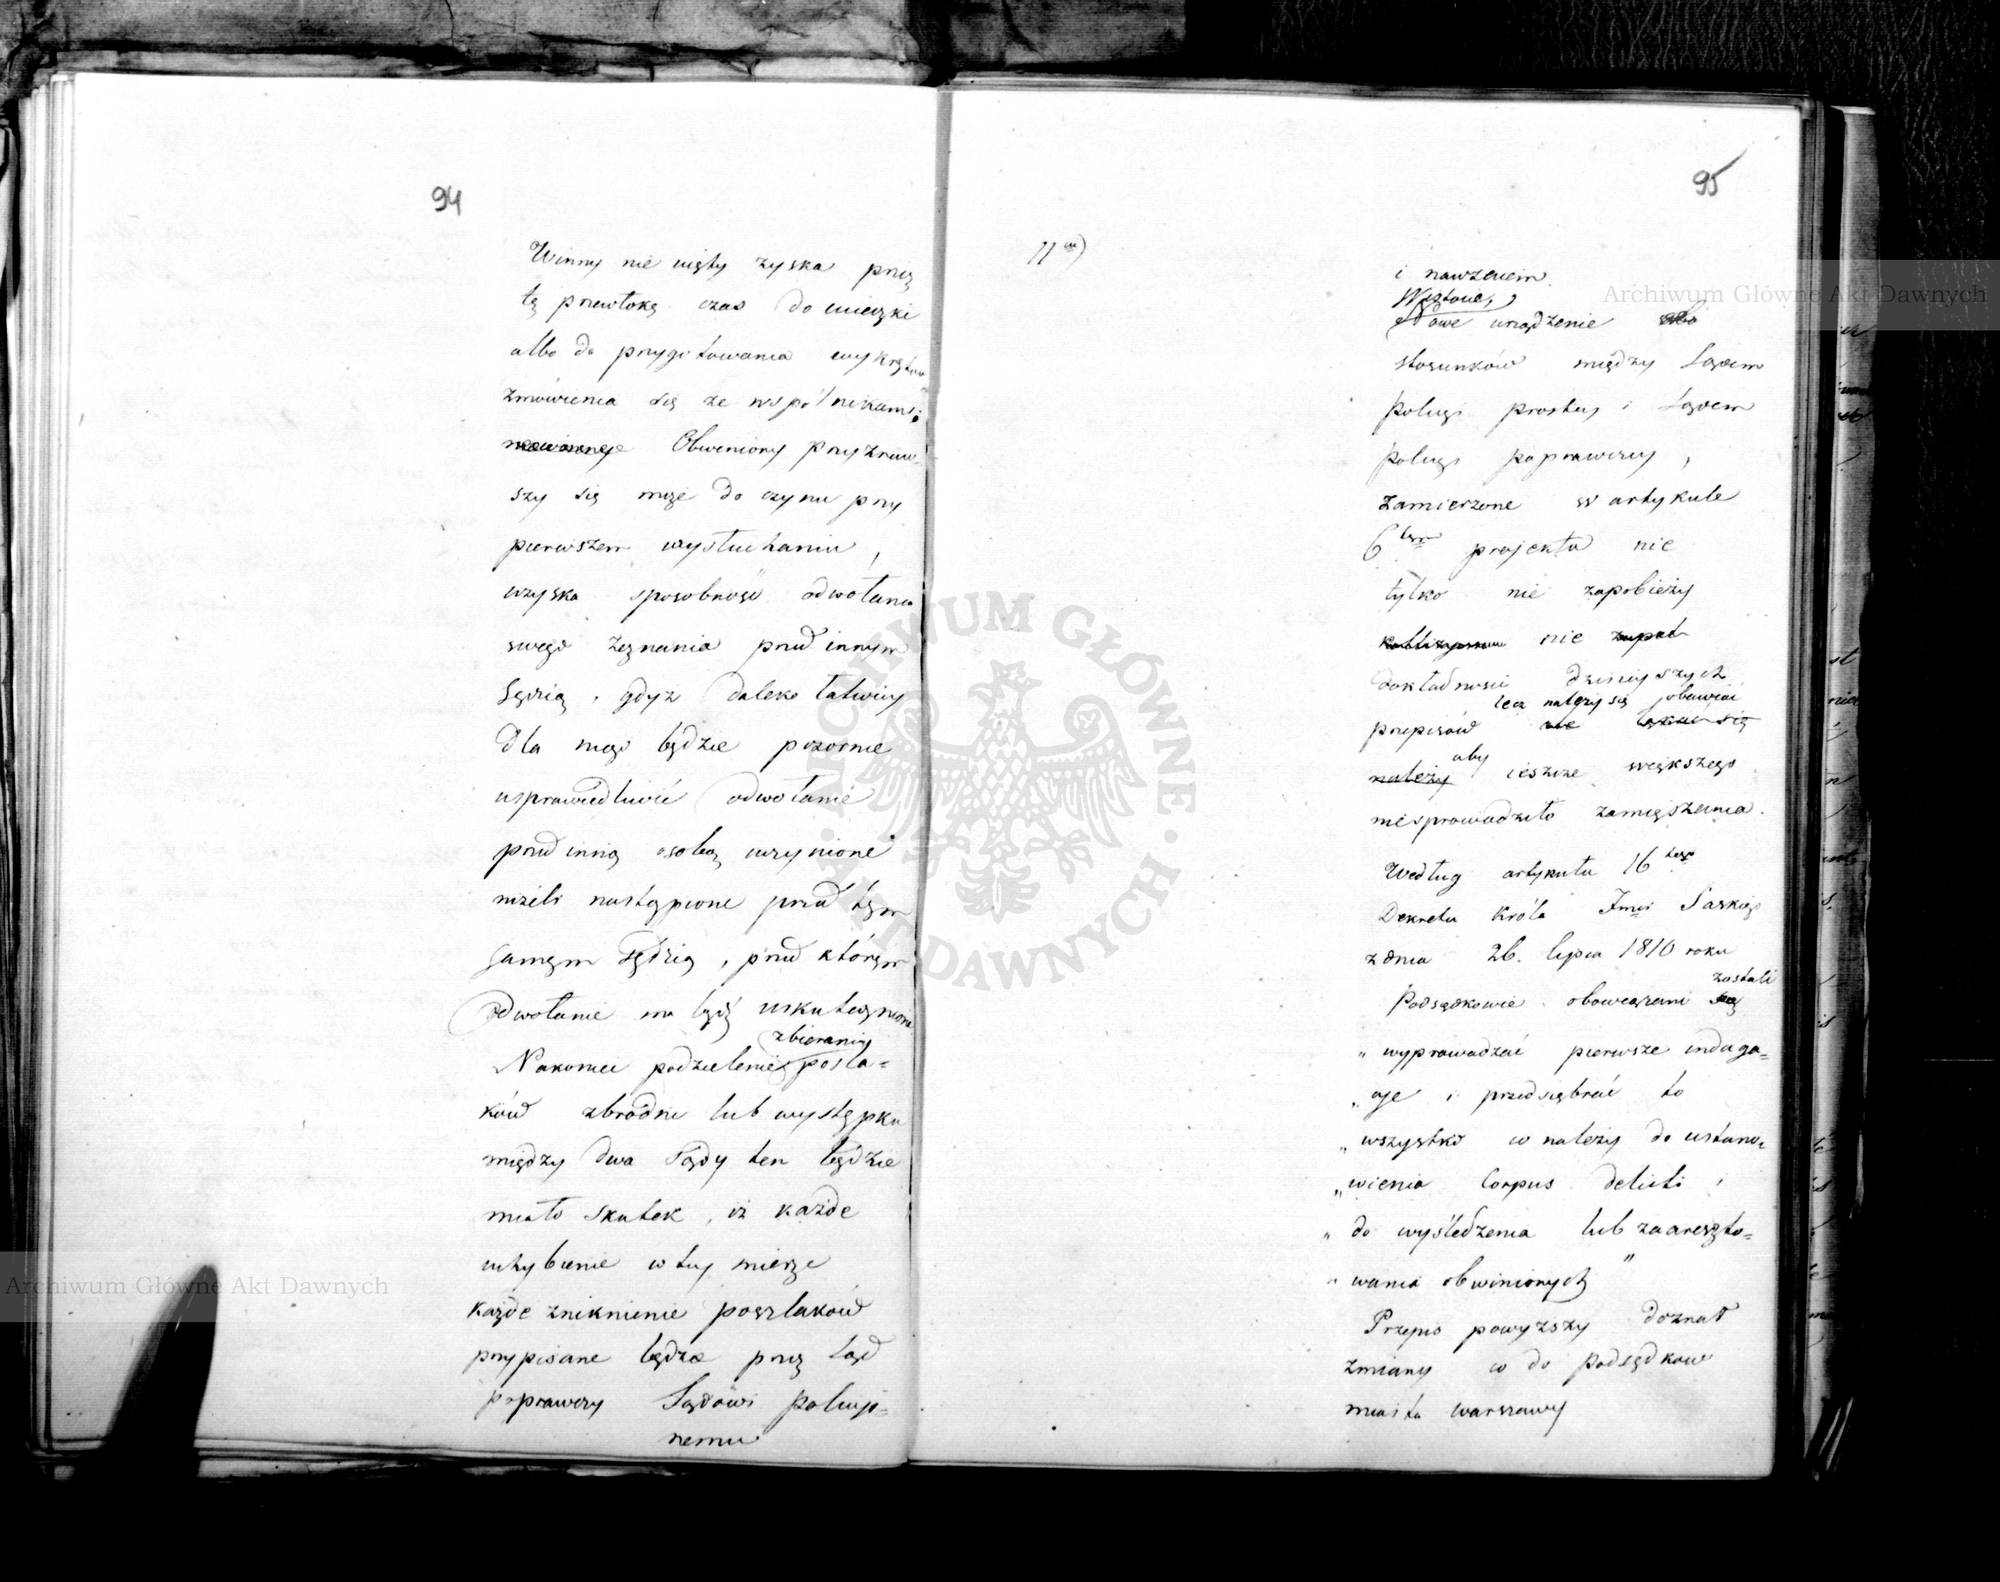 94
Winny nie ujęty zyska przez
tę przewłokę czas do ucieczki
albo do przygotowania wykrętów
zmówienia się ze wspólnikami;
Obwiniony przyznaw-
szy się może do czynu przy
pierwszem wysłuchaniu,
uzyska sposobność odwołania
swego zeznania przed innym
Sędzią, gdyż daleko łatwiej
dla niego będzie pozornie
usprawiedliwić odwołanie
przed inną osobą uczynione
niżeli nastąpione przed tym
samym Sędzią, przed którym
odwołanie ma być uskutecznione
zbierania
Nakoniec podzielenie posla-
ków zbrodni lub występku
między dwa Sądy ten będzie
miało skutek, iż każde
uchybienie w tej mierze
każde zniknienie poszlaków
przypisane będzie przez Sąd
poprawczy Sądowi policyj=
nemu
95
11
i nawzaiem
Nowe urządzenie
stosunków między Sądem
policyi prostej i Sądem
policyi poprawczej,
zamierzone w artykule
6tym projektu nie
tylko nie zapobieży
nie
dokładności dzisiejszych
lecz należy się obawiać
przepisów ale lękać się
aby
należy ieszcze większego
niesprowadziło zamięszania.
Według artykułu 16tego
Dekretu Króla Jmci Saskiego
z dnia 26. lipca 1810 roku
zostali
Podsędkowie obowiązani są
„wyprowadzać pierwsze indaga=
„cye i przedsiębrać to
„wszystko co należy do ustano=
„wienia Corpus delicti i
„do wyśledzenia lub zaareszto=
„wania obwinionych”
Przepis powyższy doznał
zmiany co do podsędków
miasta warszawy
Archiwum Główne Akt Dawnych
Archiwum Główne Akt Dawnych
ARCHIWUM GŁÓWNE · AKT DAWNYCH ·